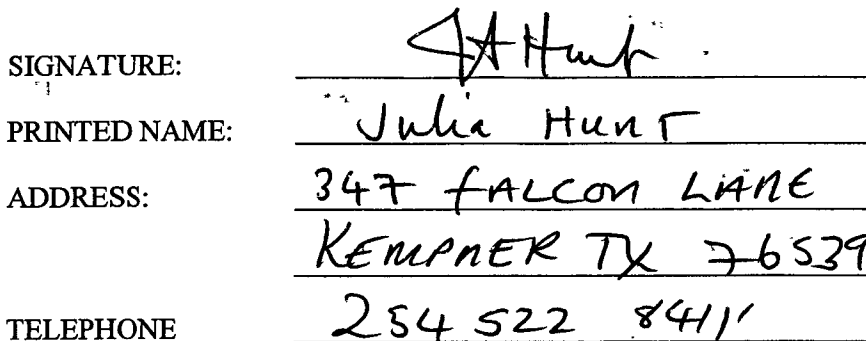 SIGNATURE: JA Hunt
PRINTED NAME: Julia Hunt
ADDRESS: 347 FALCON LANE
KEMPNER TX 76539
TELEPHONE 254 522 8411